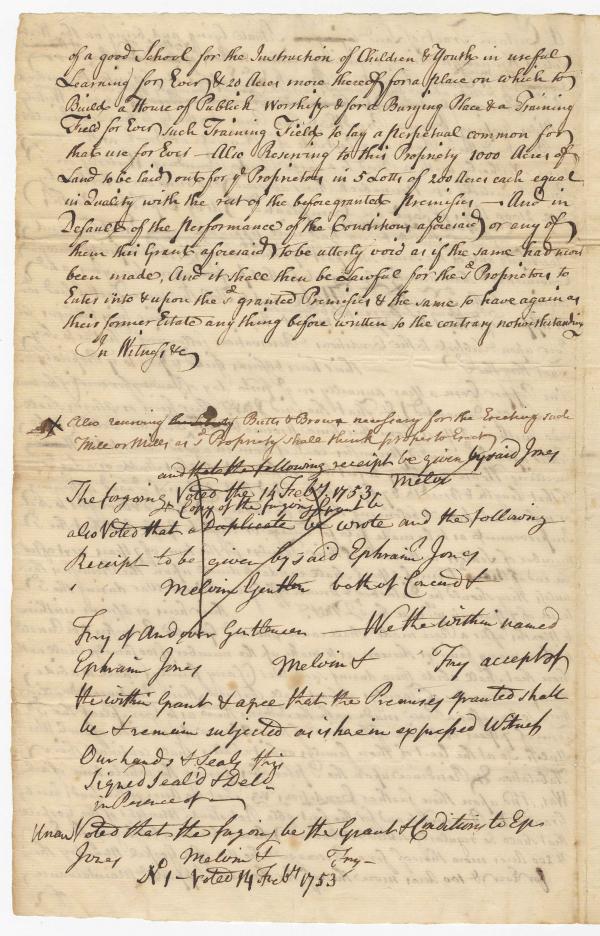 of a good School for the Instruction of Children & Youth in useful
Learning for Ever & 20 Acres more thereof for a place on which to
Build a House of Publick Worship & for a Burying Place & a Training
Field for Ever such Training Field to lay a perpetual common for
that use for Ever — Also Reserving to this Propriety 1000 Acres of
Land to be laid out for ye Proprietors in 5 Lotts of 200 Acres each equal
in Quality with the rest of the beforegranted Premisses — And in
Default of the Performance of the Conditions aforesaid or any of
them this Grant aforesaid to be utterly void as if the same had never
been made, And it shall then be Lawful for the sd Proprietors to
Enter into & upon the sd granted Premisses & the same to have again as
their former Estate any thing before written to the contrary notwithstanding
In Witness &c
Also reserving Butts & Brown necessary for the Erecting such
Mill or Mills as sd Propriety shall think proper to Erect
and that the following receipt be given by said Jones
Melvin
The forgoing Voted the 14 Feby. 1753
Copy of the forgoing Grant be
also Voted that a Duplicate be wrote and the following
Receipt to be given by said Ephraim Jones
Melvin Gentlen both of Concord &
Fry of Andover Gentlemen — We the within named
Ephraim Jones Melvin & Fry accept of
the within Grant & agree that the Premises granted shall
be & remain subjected as is herein expressed Witness
Our hands & Seals this
Signed Seald & Deld
in Presence of
Unan Voted that the forgoing be the Grant & Conditions to Eph
Jones Melvin & Fry —
No 1 — Voted 14 Feby 1753